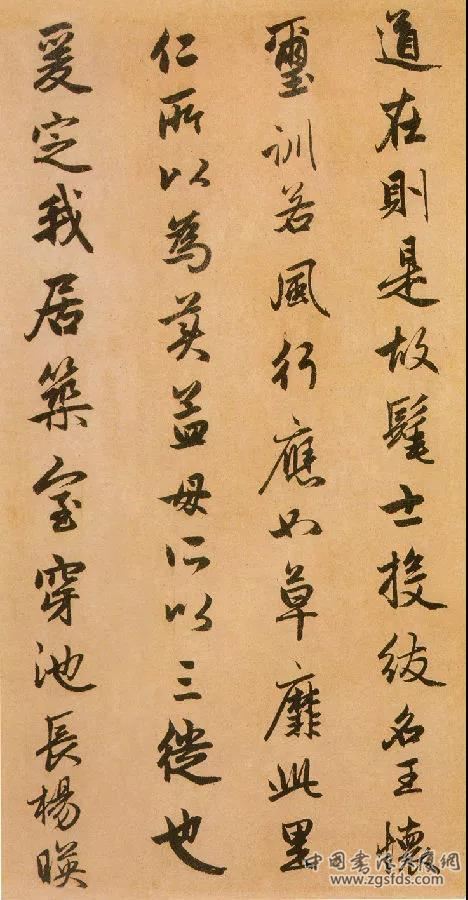 道在則是故髦士投紱名王懷
璽訓若風行應如草靡此里
仁所以為美孟母所以三徙也
爰定我居築室穿池長楊暎
www.zgsfds.com